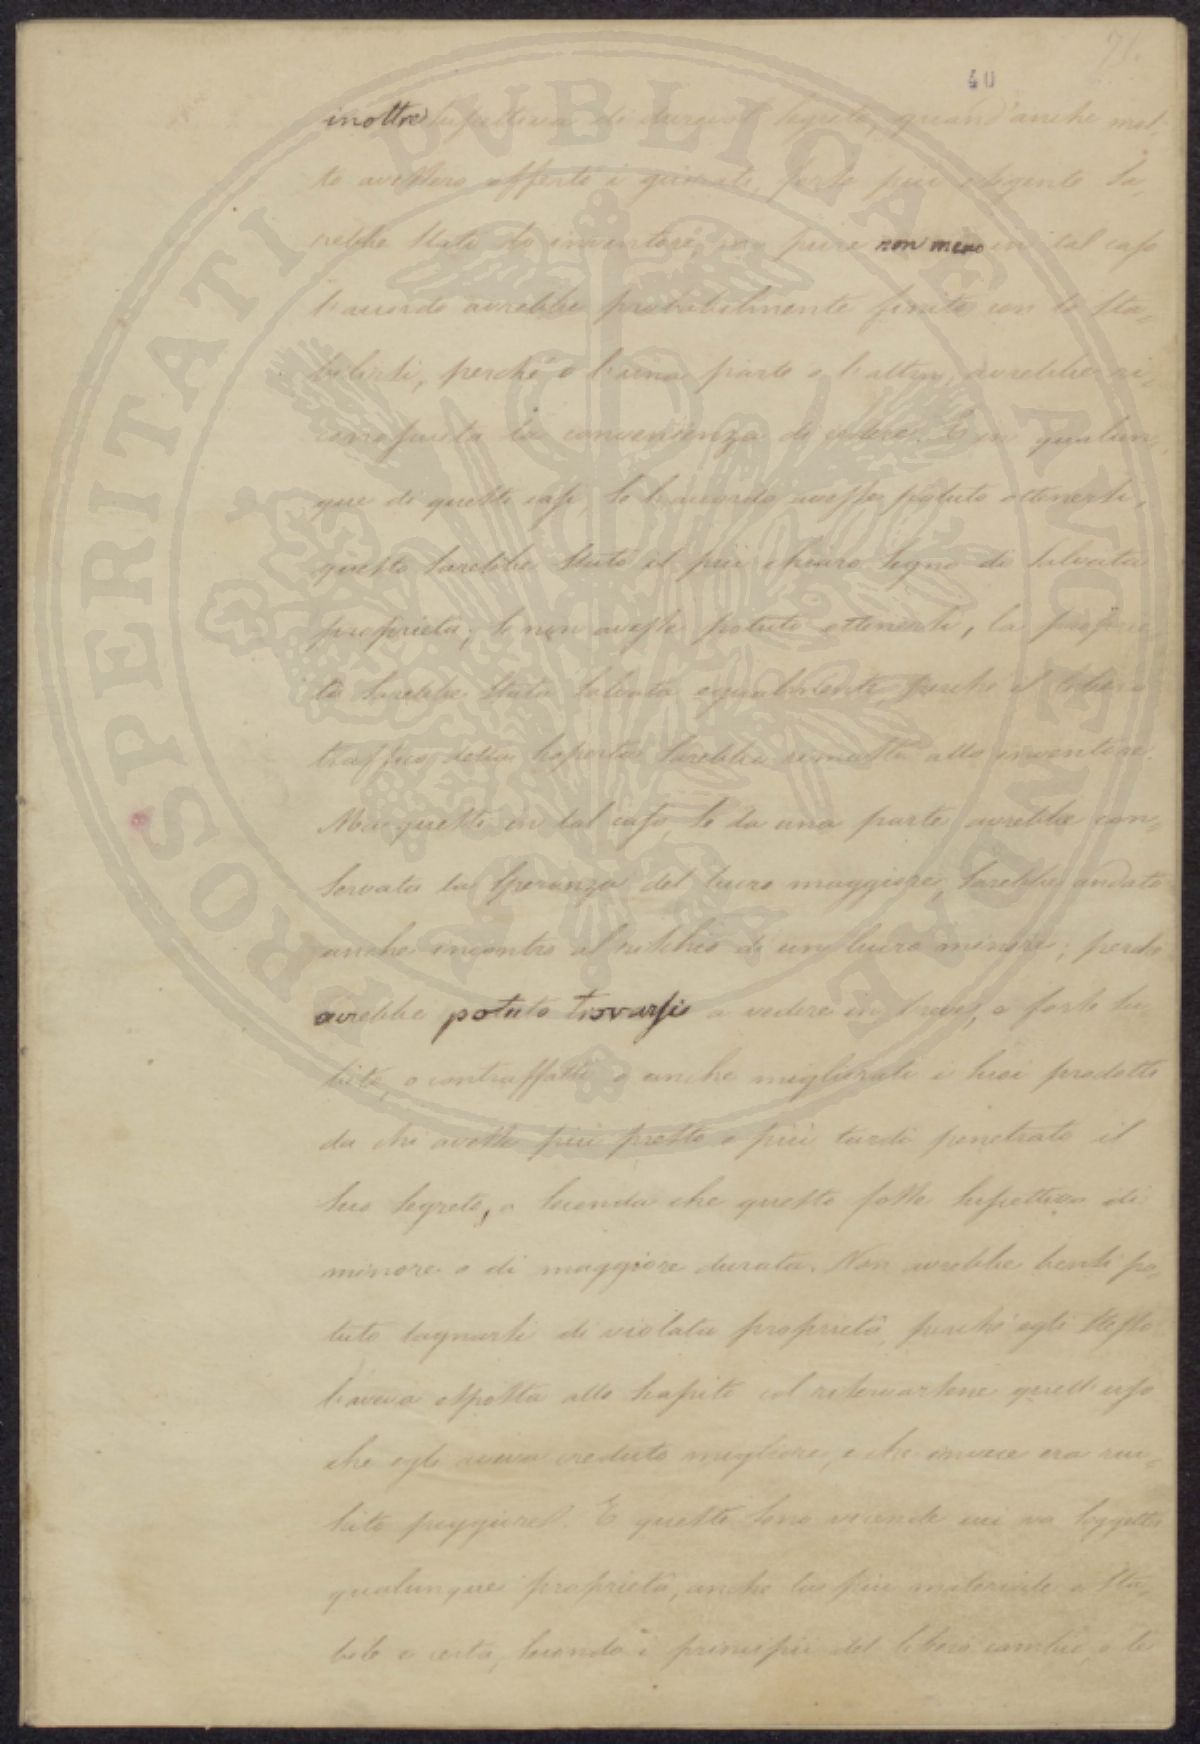 71.
40
inoltre suscettiva di durevol segreto, quand'anche mol-
to avessero offerto i giurati, forse più esigente sa-
rebbe stato lo inventore, ma pure non meno in tal caso
l'accordo avrebbe probabilmente finito con lo sta-
bilirsi, perché e l'una parte e l'altra, avrebbe ri-
conosciuta la convenienza di cedere. E in qualun-
que di questi casi, se l'accordo avesse potuto ottenersi,
questo sarebbe stato il più chiaro segno di salvata
proprietà; se non avesse potuto ottenersi, la proprie-
tà sarebbe stata salvata egualmente perché il libero
traffico della scoperta sarebbe rimasto allo inventore.
Ma questi in tal caso, se da una parte avrebbe con-
servata la speranza del lucro maggiore, sarebbe andato
anche incontro al rischio di un lucro minore; perché
avrebbe potuto trovarsi a vedere in breve, e forse su-
bito, o contraffatti o anche migliorati i suoi prodotti
da chi avesse più presto o più tardi penetrato il
suo segreto, a seconda che questo fosse suscettivo di
minore o di maggiore durata. Non avrebbe bensì po-
tuto lagnarsi di violata proprietà, perché egli stesso
l'aveva esposta allo scapito col riservarsene quell'uso
che egli aveva creduto migliore, e che invece era riu-
scito peggiore. E queste sono vicende cui va soggetta
qualunque proprietà, anche la più materiale e sta-
bile e certa, secondo i principii del libero cambio, e le
PROSPERITATI PUBLICAE AVGENDAE